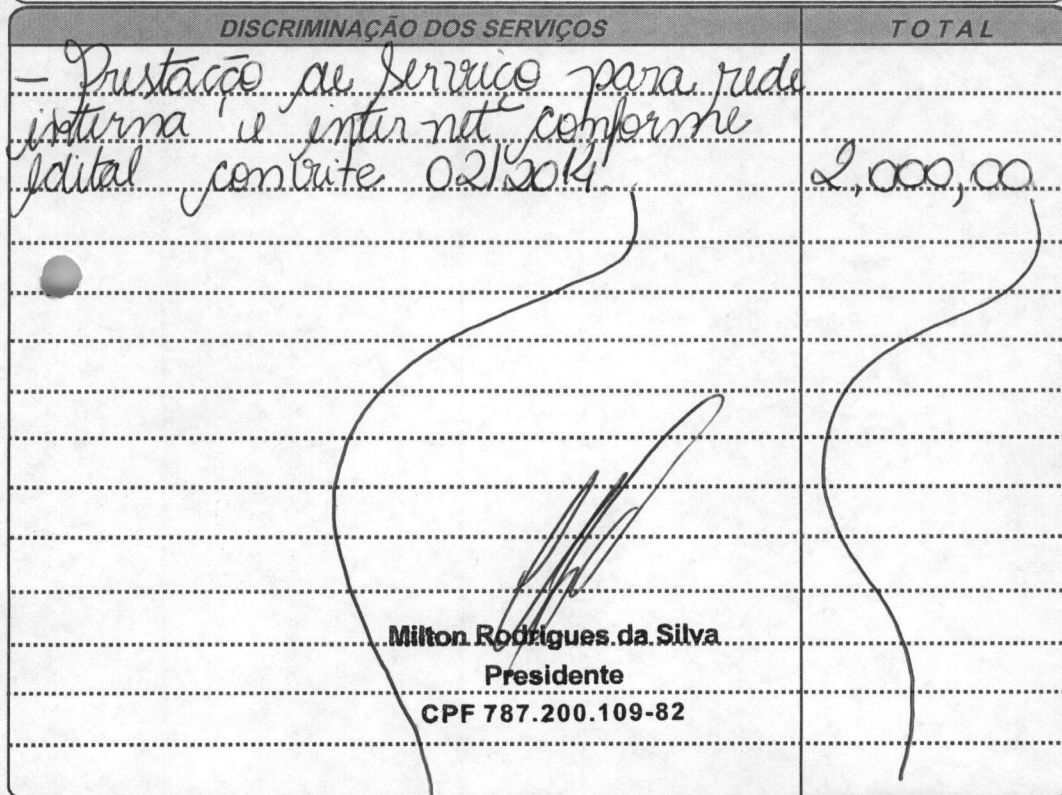 DISCRIMINAÇÃO DOS SERVIÇOS TOTAL
- Prestação de Serviço para rede
interna e internet conforme
edital convite 02/2014 2,000,00
Milton Rodrigues da Silva
Presidente
CPF 787.200.109-82